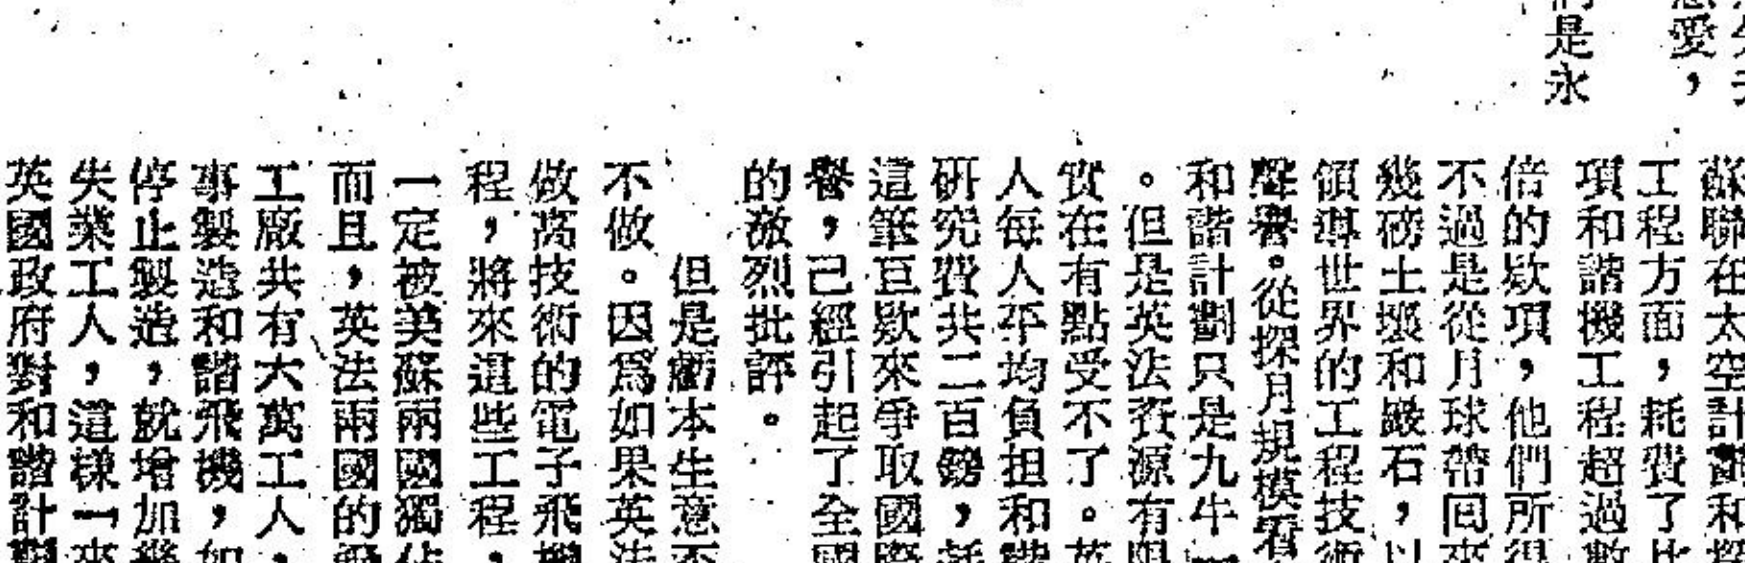 愛，
們是永
蘇聯在太空計劃和探
工程方面，耗費了比
項和諧機工程超過數
倍的欵項，他們所得
不過是從月球帶回來
幾磅土壤和巖石，以
領導世界的工程技術
聲譽。從探月規模看
和諧計劃只是九牛一
。但是英法資源有限
實在有點受不了。英
人每人平均負担和諧
研究費共二百鎊，耗
這筆巨欵來爭取國際
譽，己經引起了全國
的激烈批評。
但是虧本生意不
不做。因爲如果英法
做高技術的電子飛機
程，將來這些工程，
一定被美蘇兩國獨佔
而且，英法兩國的
工廠共有六萬工人，
事製造和諧飛機，如
停止製造，就增加幾
失業工人，這樣一來
英國政府對和諧計劃